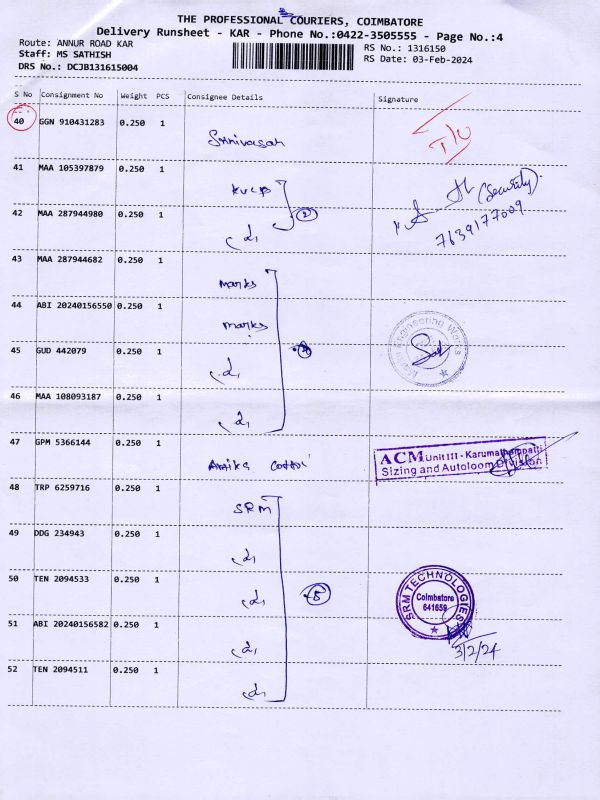 THE PROFESSIONAL COURIERS, COIMBATORE
Delivery Runsheet - KAR - Phone No.:0422-3505555 - Page No.:4
Route: ANNUR ROAD KAR
Staff: MS SATHISH
DRS No.: DCJB131615004
RS No.: 1316150
RS Date: 03-Feb-2024
S No Consignment No Weight PCS Consignee Details Signature
40 GGN 910431283 0.250 1
Srinivasan
41 MAA 105397879 0.250 1
KVCP
(Security)
42 MAA 287944980 0.250 1
2
7639177009
43 MAA 287944682 0.250 1
marks
44 ABI 20240156550 0.250 1
marks
45 GUD 442079 0.250 1
46 MAA 108093187 0.250 1
47 GPM 5366144 0.250 1
ACM Unit III - Karumathampatti
Sizing and Autoloom Division
48 TRP 6259716 0.250 1
SRM
49 DDG 234943 0.250 1
50 TEN 2094533 0.250 1
5
SRM TECHNOLOGIES
Coimbatore
641659
51 ABI 20240156582 0.250 1
3/2/24
52 TEN 2094511 0.250 1